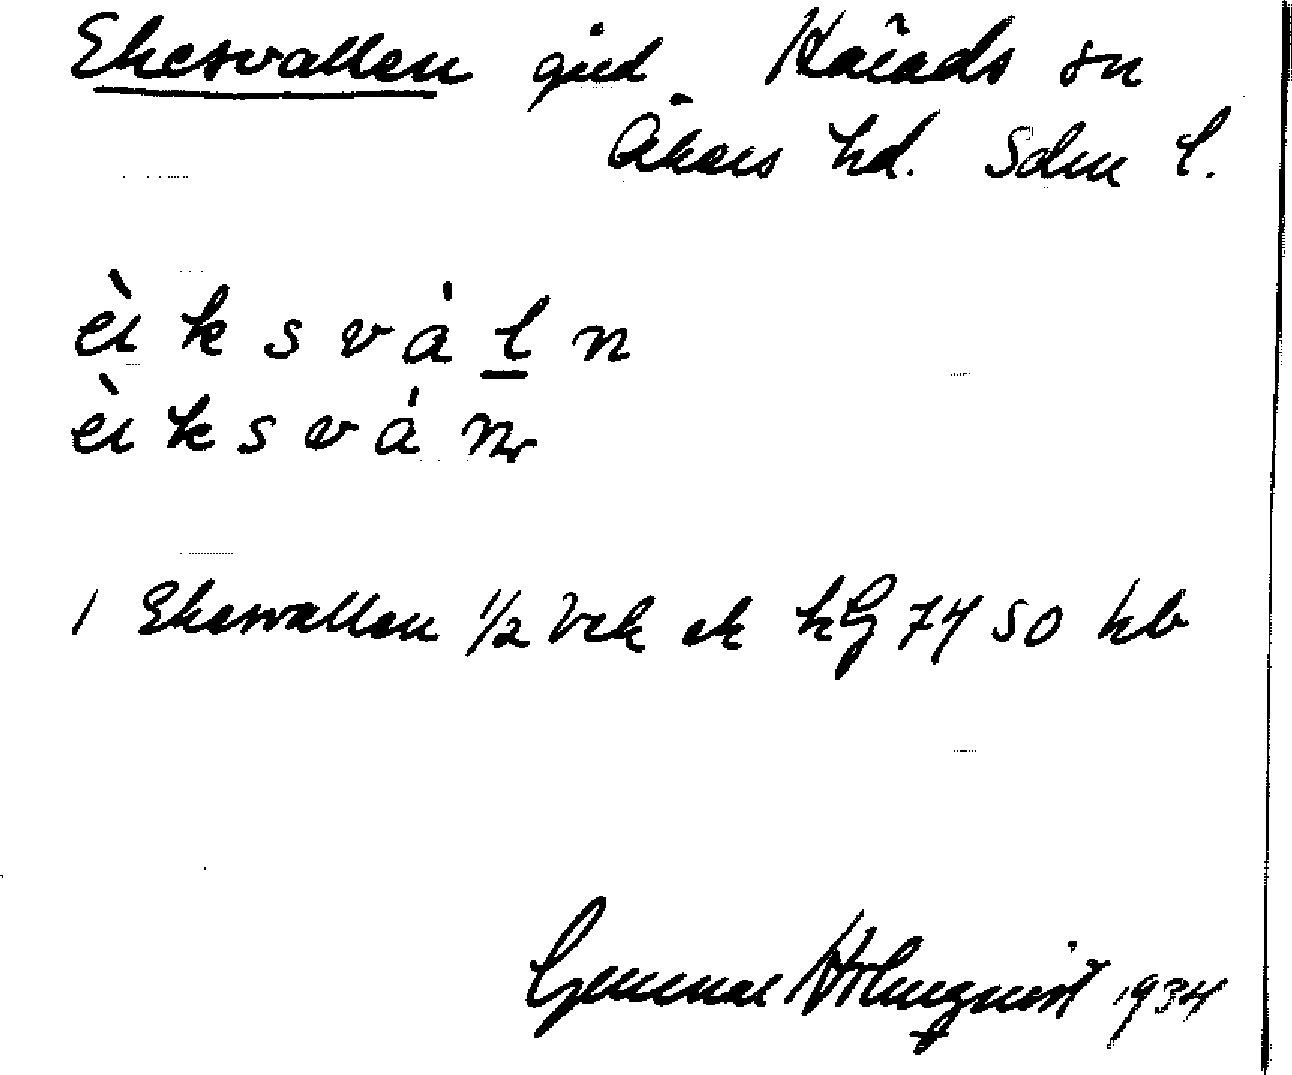 Ekesvallen gård Härads sn
Åkers hd. Sdm l.
èi k s v à l n
èi k s v à n
1 Ekesvallen 1/2 vck ek hG 74 50 hb
Gunnar Holmqvist 1934